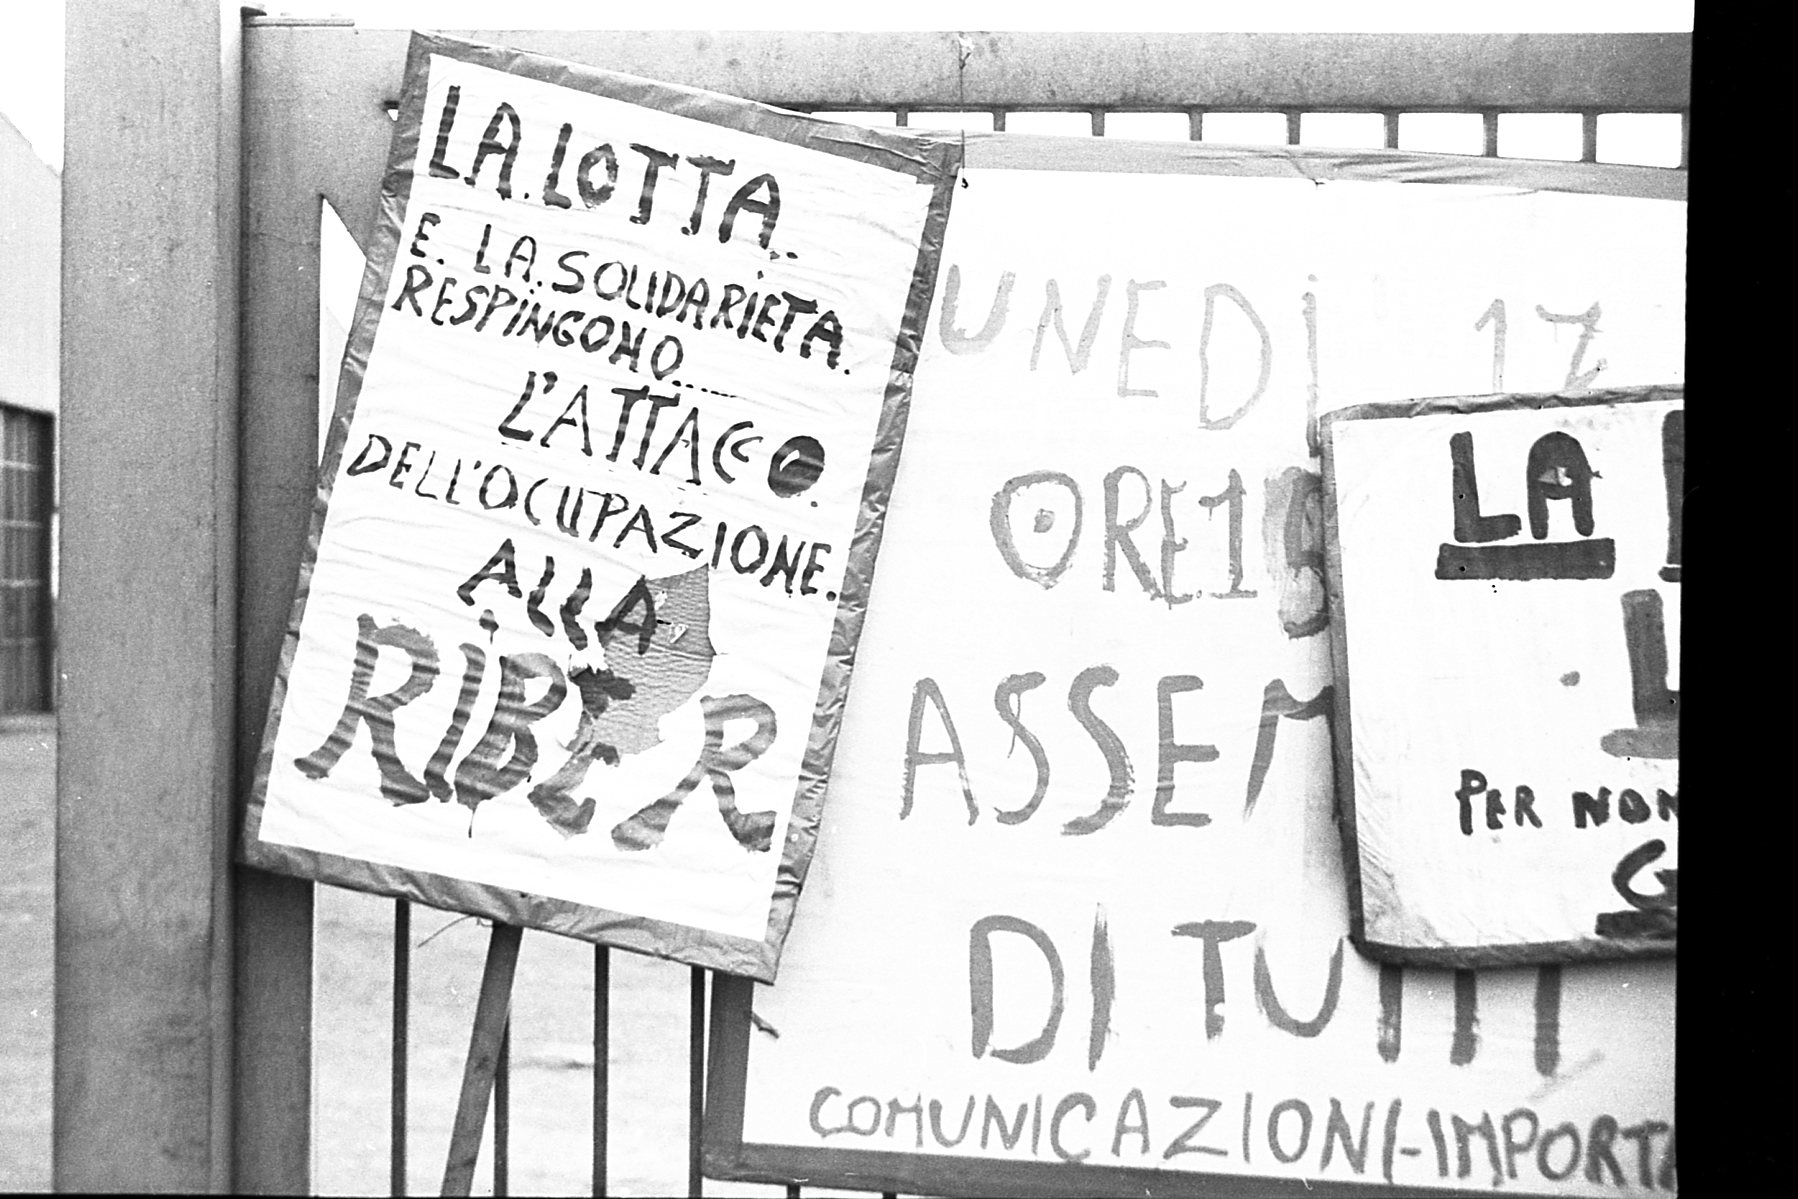 LA. LOTTA..
E. LA. SOLIDARIETA.
RESPiNGONO.....
L'ATTACCO.
DELL'OCUPAZIONE.
ALLA
RiBER
UNEDi 17
ORE 15
ASSEM
DI TUTTI
COMUNICAZIONI-IMPORTA
LA
L
PER NON
G